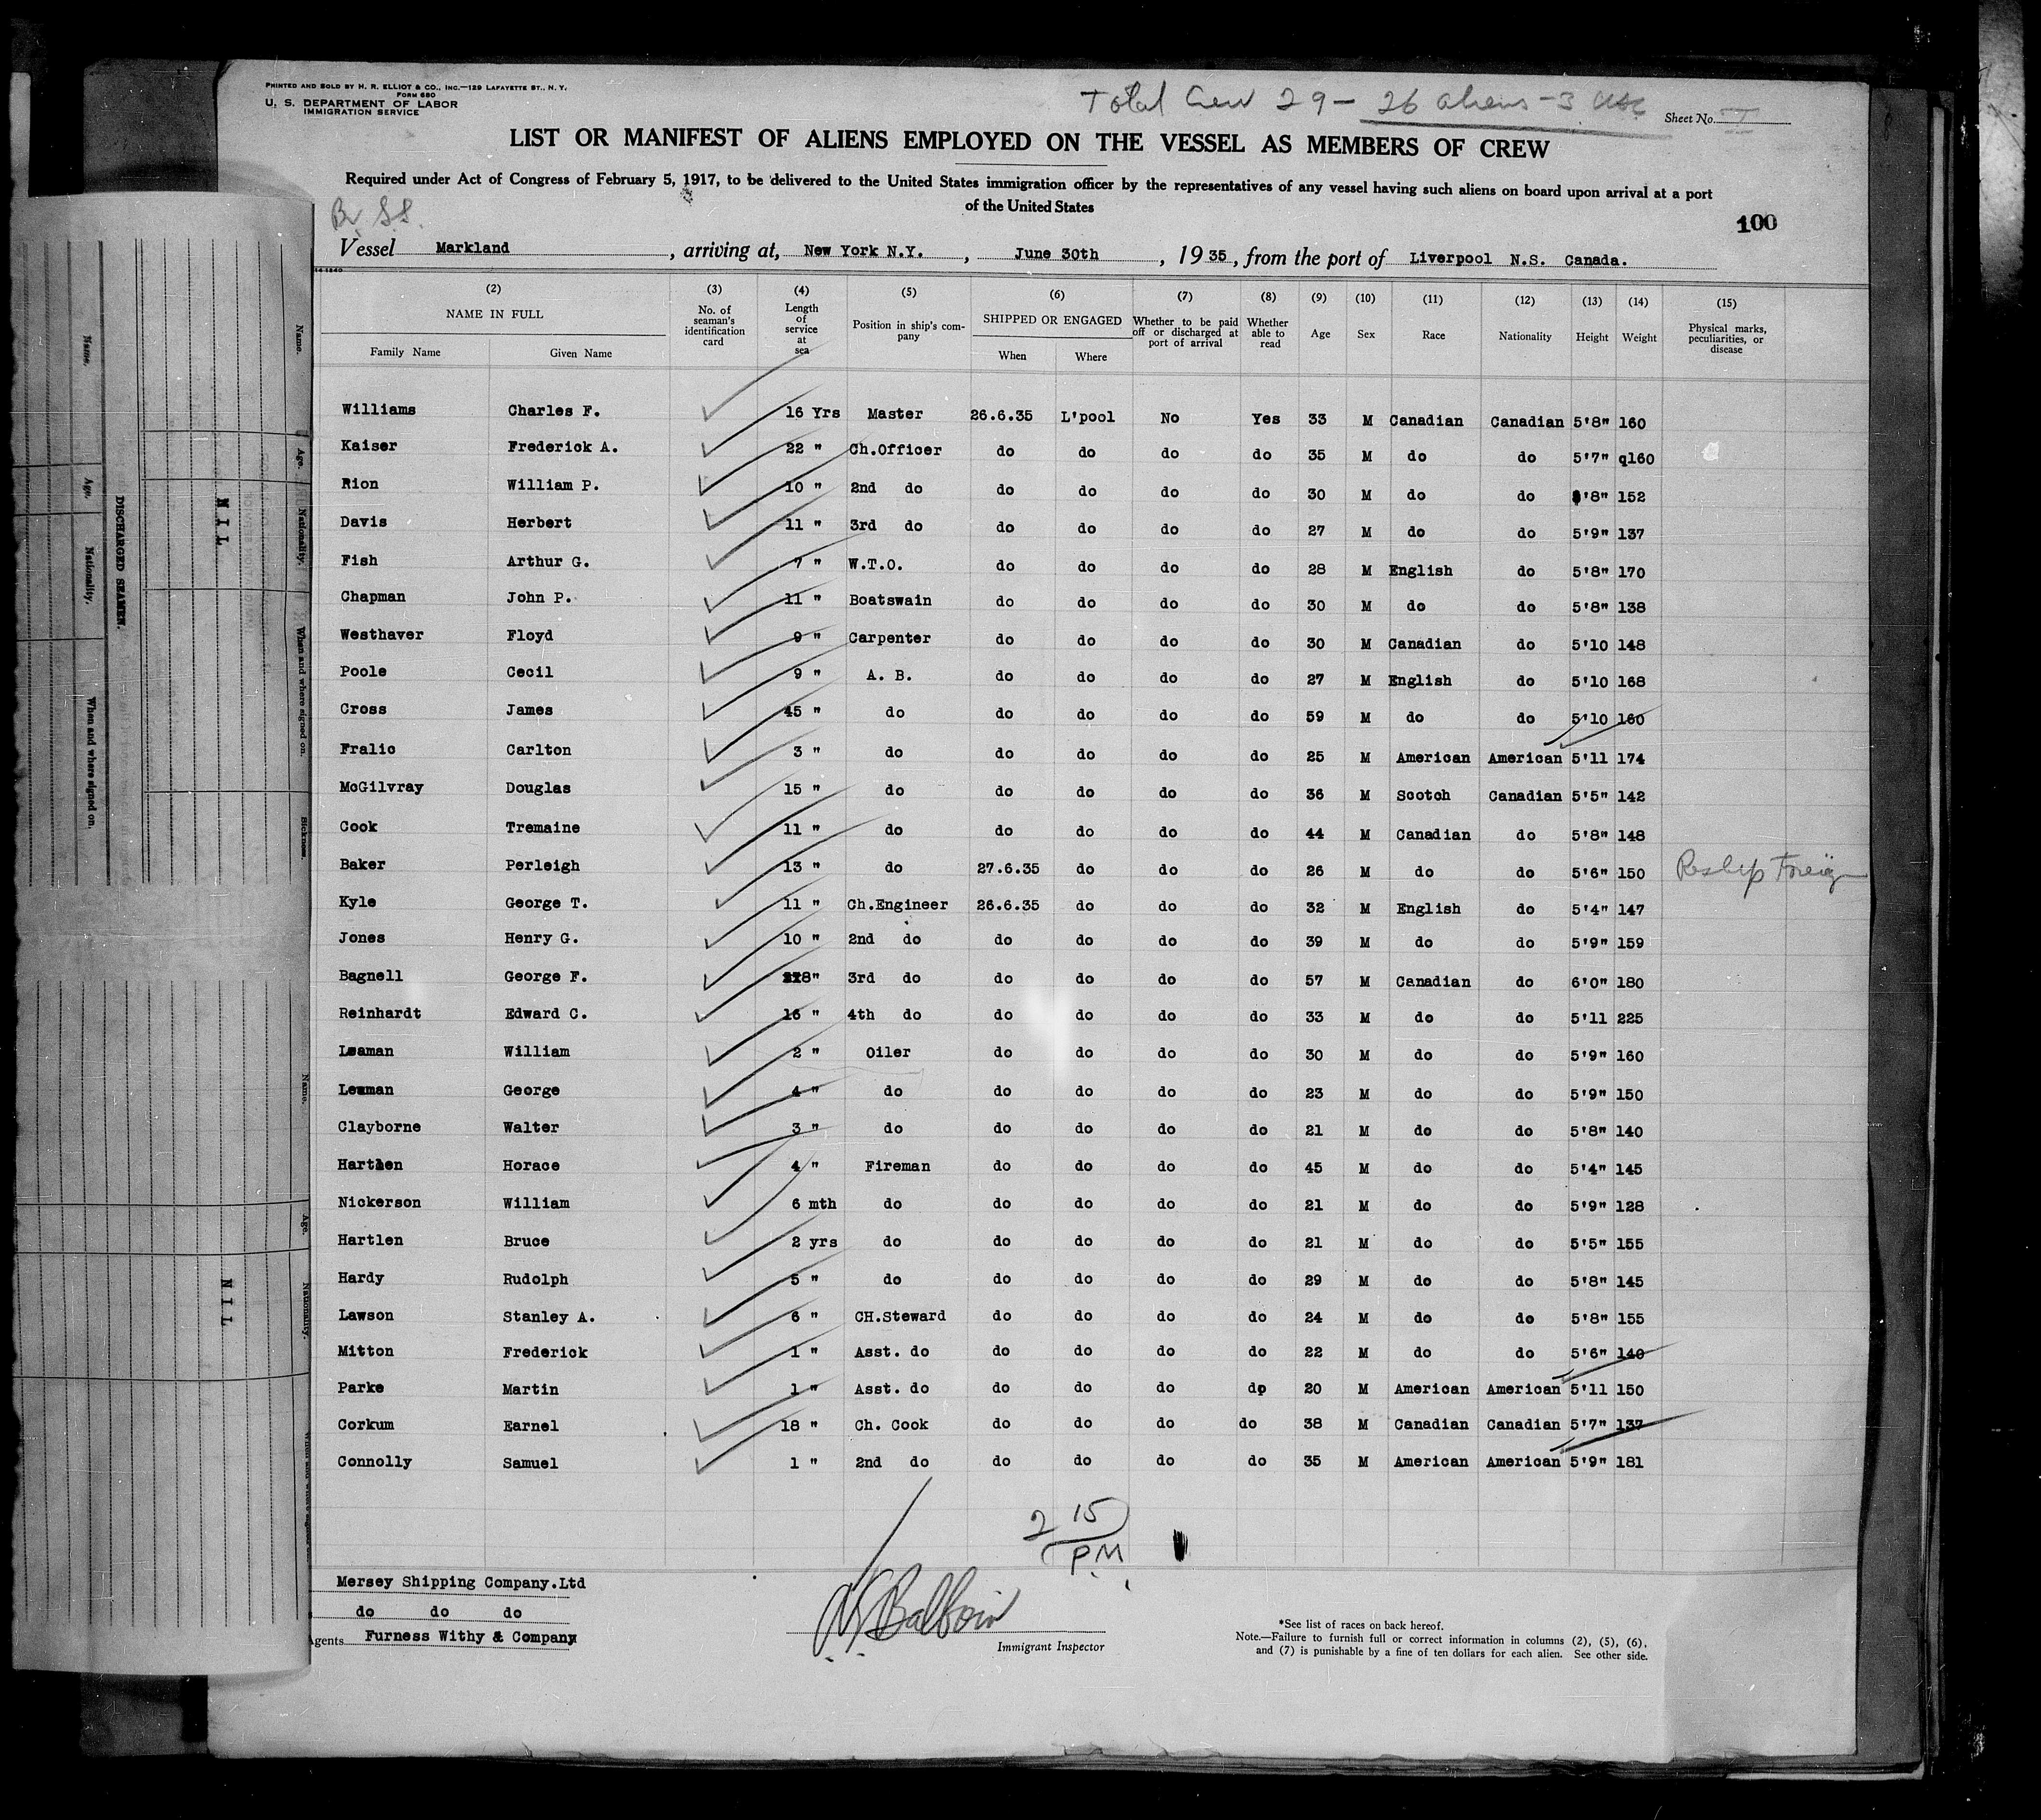 PRINTED AND SOLD BY H. R. ELLIOT & CO., INC.—129 LAFAYETTE ST., N. Y.
FORM 680
U. S. DEPARTMENT OF LABOR
IMMIGRATION SERVICE
Total Crew 29 - 26 aliens - 3 USC
Sheet No. I
LIST OR MANIFEST OF ALIENS EMPLOYED ON THE VESSEL AS MEMBERS OF CREW
Required under Act of Congress of February 5, 1917, to be delivered to the United States immigration officer by the representatives of any vessel having such aliens on board upon arrival at a port
of the United States
Br. S.S.
100
Vessel Markland, arriving at, New York N.Y., June 30th, 1935, from the port of Liverpool N.S. Canada.
(2) (3) (4) (5) (6) (7) (8) (9) (10) (11) (12) (13) (14) (15)
NAME IN FULL
Family Name Given Name
No. of seaman's identification card
Length of service at sea
Position in ship's company
SHIPPED OR ENGAGED
When Where
Whether to be paid off or discharged at port of arrival
Whether able to read
Age Sex Race Nationality Height Weight
Physical marks, peculiarities, or disease
Williams Charles F. 16 Yrs Master 26.6.35 L'pool No Yes 33 M Canadian Canadian 5'8" 160
Kaiser Frederick A. 22 " Ch.Officer do do do do 35 M do do 5'7" q160
Rion William P. 10 " 2nd do do do do do 30 M do do '8" 152
Davis Herbert 11 " 3rd do do do do do 27 M do do 5'9" 137
Fish Arthur G. 7 " W.T.O. do do do do 28 M English do 5'8" 170
Chapman John P. 11 " Boatswain do do do do 30 M do do 5'8" 138
Westhaver Floyd 9 " Carpenter do do do do 30 M Canadian do 5'10 148
Poole Cecil 9 " A. B. do do do do 27 M English do 5'10 168
Cross James 45 " do do do do do 59 M do do 5'10 160
Fralic Carlton 3 " do do do do do 25 M American American 5'11 174
McGilvray Douglas 15 " do do do do do 36 M Scotch Canadian 5'5" 142
Cook Tremaine 11 " do do do do do 44 M Canadian do 5'8" 148
Baker Perleigh 13 " do 27.6.35 do do do 26 M do do 5'6" 150 Reship Foreign
Kyle George T. 11 " Ch.Engineer 26.6.35 do do do 32 M English do 5'4" 147
Jones Henry G. 10 " 2nd do do do do do 39 M do do 5'9" 159
Bagnell George F. 3rd do do do do do 57 M Canadian do 6'0" 180
Reinhardt Edward C. 16 " 4th do do do do do 33 M do do 5'11 225
Leaman William 2 " Oiler do do do do 30 M do do 5'9" 160
Leaman George 4 " do do do do do 23 M do do 5'9" 150
Clayborne Walter 3 " do do do do do 21 M do do 5'8" 140
Hartlen Horace 4 " Fireman do do do do 45 M do do 5'4" 145
Nickerson William 6 mth do do do do do 21 M do do 5'9" 128
Hartlen Bruce 2 yrs do do do do do 21 M do do 5'5" 155
Hardy Rudolph 5 " do do do do do 29 M do do 5'8" 145
Lawson Stanley A. 6 " CH.Steward do do do do 24 M do do 5'8" 155
Mitton Frederick 1 " Asst. do do do do do 22 M do do 5'6" 140
Parke Martin 1 " Asst. do do do do dp 20 M American American 5'11 150
Corkum Earnel 18 " Ch. Cook do do do do 38 M Canadian Canadian 5'7" 137
Connolly Samuel 1 " 2nd do do do do do 35 M American American 5'9" 181
2 15 PM
Mersey Shipping Company.Ltd
do do do
Agents Furness Withy & Company
Immigrant Inspector
*See list of races on back hereof.
Note.—Failure to furnish full or correct information in columns (2), (5), (6),
and (7) is punishable by a fine of ten dollars for each alien. See other side.
Name. Age. Nationality. When and where signed on.
DISCHARGED SEAMEN.
NIL
Name. Age. Nationality. When and where signed on. Sickness.
Name. Age. Nationality.
NIL